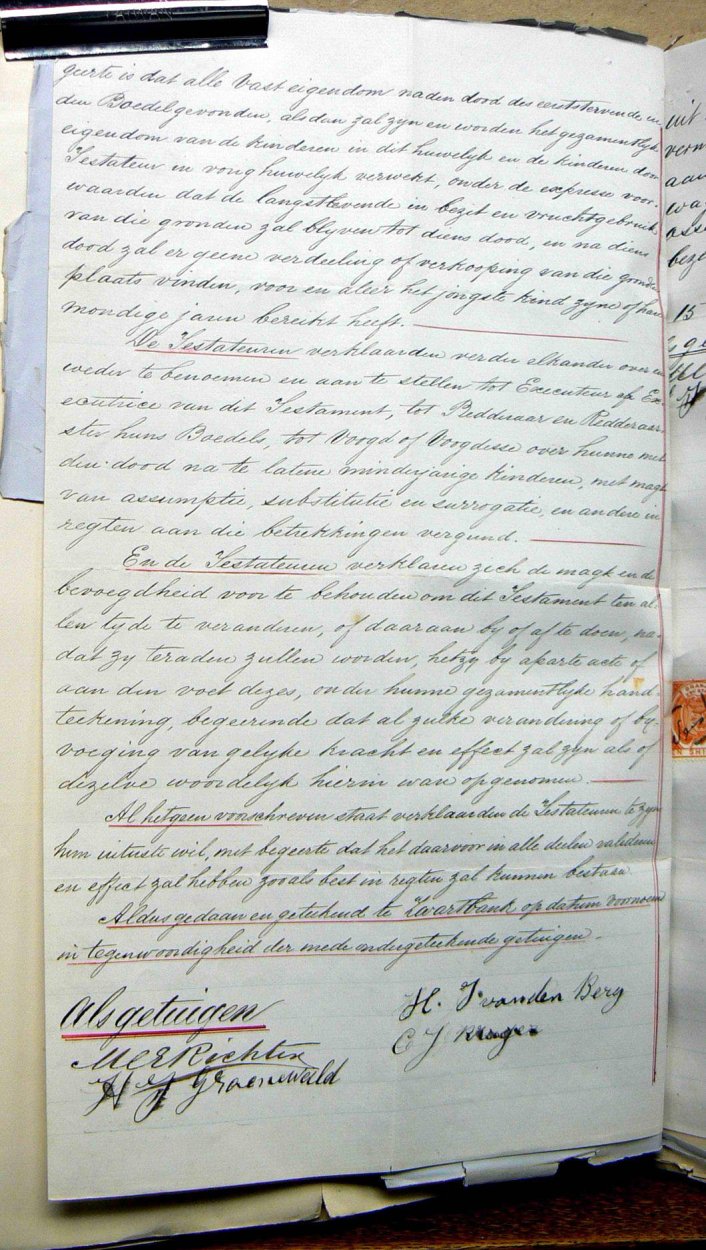 geerte is dat alle Vast eigendom na den dood des eerststervende in
den Boedel gevonden, als dan zal zyn en worden het gezamentlyk
eigendom van de kinderen in dit huwelyk en de kinderen door
Testateur in vorig huwelyk verwekt, onder de expresse voor-
waarden dat de langstlevende in bezit en vruchtgebruik
van die gronden zal blyven tot diens dood, en na diens
dood zal er geene verdeeling of verkooping van die gronden
plaats vinden, voor en aleer het jongste kind zyne of hare
mondige jaren bereikt heeft.
De Testateuren verklaarden verder elkander over en
weder te benoemen en aan te stellen tot Executeur of Ex-
ecutrice van dit Testament, tot Redderaar en Redderaar-
ster huns Boedels, tot Voogd of Voogdesse over hunne met
den dood na te laten minderjarige kinderen, met magt
van assumptie, substitutie en surrogatie, en andere in
regten aan die betrekkingen vergund.
En de Testateuren verklaren zich de magt en de
bevoegdheid voor te behouden om dit Testament ten al-
len tyde te veranderen, of daaraan by of af te doen, na-
dat zy te raden zullen worden, hetzy by aparte acte of
aan den voet dezes, onder hunne gezamentlyke hand-
teekening, begeerende dat al zulke verandering of by-
voeging van gelyke kracht en effect zal zyn als of
dezelve woordelyk hierin was opgenomen.
Al hetgeen voorschreven staat verklaarden de Testateuren te zyn
hun uiterste wil, met begeerte dat het daarvoor in alle deelen valideren
en effect zal hebben zooals best in regten zal kunnen bestaan
Aldus gedaan en geteekend te Zwartbank op datum voornoemd
in tegenwoordigheid der mede ondergeteekende getuigen.
Als getuigen
H. J van den Berg
C J Kruger
M C E Richter
H J Groenewald
uit
aan
15